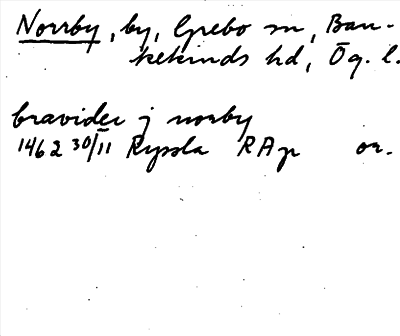 Norrby, by, Grebo sn, Ban-
kekinds hd, Ög. l.
bravider j norby
1462 30/11 Ryssla RAp or.